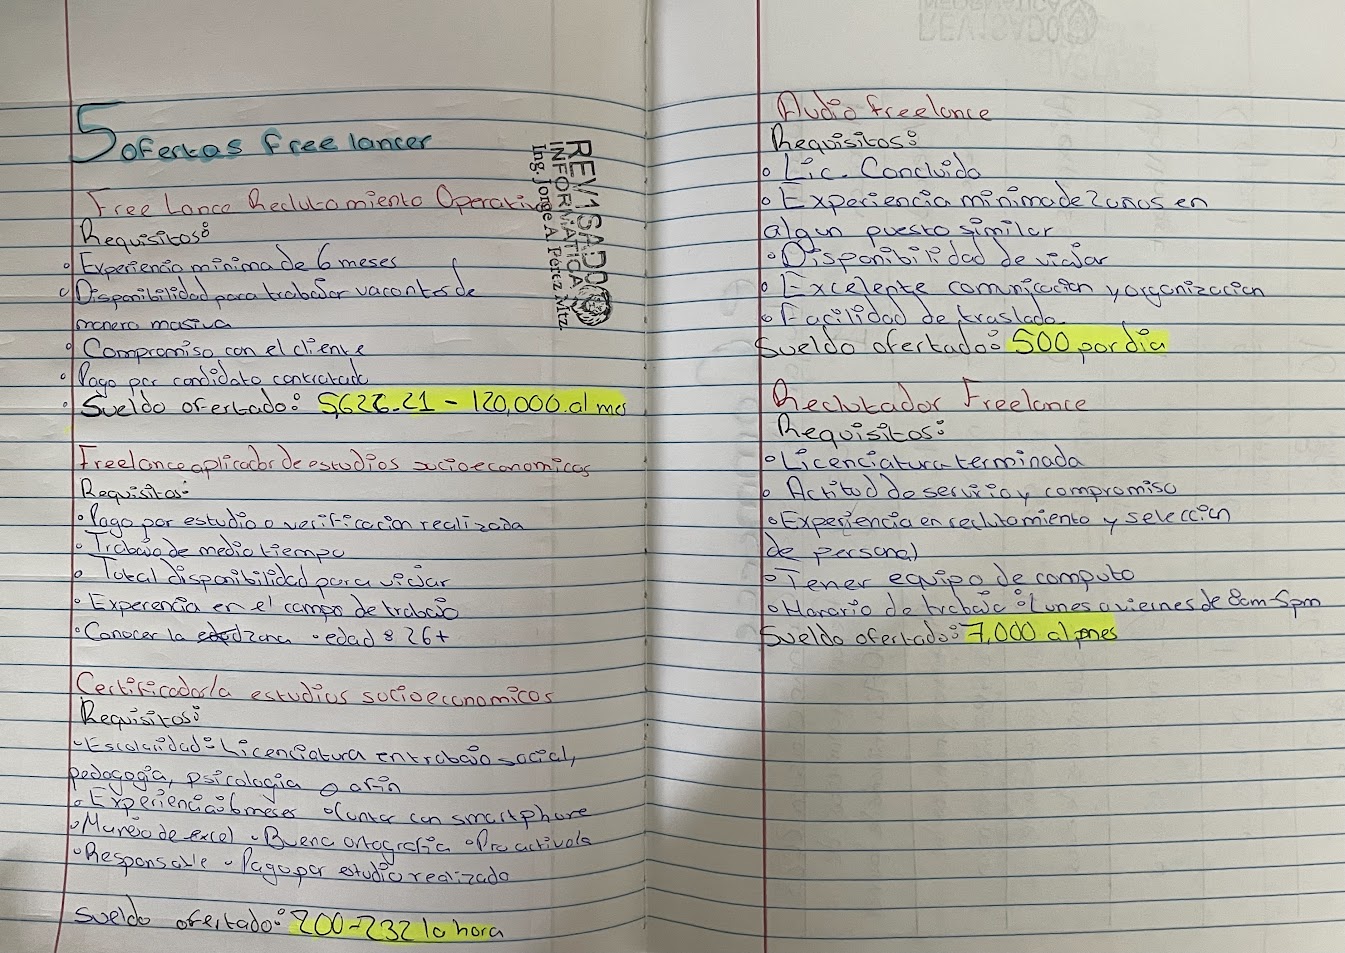 5 ofertas freelancer
Free Lance Reclutamiento Operativo
Requisitos:
Experiencia minima de 6 meses
Disponibilidad para trabajar vacantes de
manera masiva
Compromiso con el cliente
Pago por candidato contratado
Sueldo ofertado: 5,626.21 - 120,000 al mes
Freelance aplicador de estudios socioeconomicos
Requisitos:
Pago por estudio o verificacion realizada
Trabajo de medio tiempo
Total disponibilidad para viajar
Experencia en el campo de trabajo
Conocer la zona • edad: 26+
Certificador/a estudios socioeconomicos
Requisitos:
Escolaridad: Licenciatura en trabajo social,
pedagogia, psicologia o afin
Experiencia: 6 meses • Contar con smartphone
Manejo de excel • Buena ortografia • Pro activo/a
Responsable • Pago por estudio realizado
Sueldo ofertado: 200-232 la hora
REVISADO
INFORMATICA
Ing. Jorge A Pérez Mtz.
Audio freelance
Requisitos:
Lic. Concluida
Experiencia minima de 2 años en
algun puesto similar
Disponibilidad de viajar
Excelente comunicacion y organizacion
Facilidad de traslado
Sueldo ofertado: 500 por dia
Reclutador Freelance
Requisitos:
Licenciatura terminada
Actitud de servicio y compromiso
Experiencia en reclutamiento y seleccion
de personal
Tener equipo de computo
Horario de trabajo: Lunes a viernes de 8am-5pm
Sueldo ofertado: 7,000 al mes